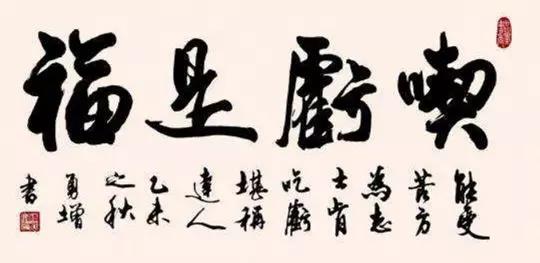 喫虧是福
能受
苦方
為志
士肯
吃虧
堪稱
達人
乙未
之秋
勇增
書